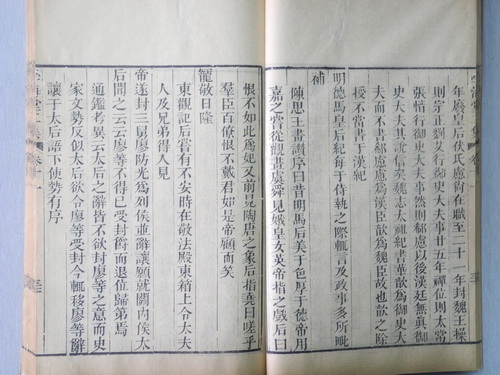 年廢皇后伏氏慮尙在職至二十一年封魏王操
則宗正劉艾行御史大夫事廿五年禪位則太常
張愔行御史大夫事然則郗慮以後漢廷無眞御
史大夫其說信矣魏志太祖紀書華歆爲御史大
夫而不書郗慮慮爲漢臣歆爲魏臣故也歆之除
授不當書于漢紀
明德馬皇后紀每于侍執之際輒言及政事多所毗
補
陳思王書讚序曰昔明馬后美于色厚于德帝用
嘉之嘗從觀畫虞舜見娥皇女英帝指之戲后曰
恨不如此爲妃又前見陶唐之象后指堯曰嗟乎
羣臣百僚恨不戴君如是帝顧而笑
寵敬日隆
東觀記后嘗有不安時在敬法殿東箱上令太夫
人及兄弟得入見
帝遂封三舅廖防光爲列侯並辭讓願就關內侯太
后聞之云云廖等不得已受封爵而退位歸第焉
通鑑考異云太后之辭皆不欲封廖等之意而史
家文勢反似太后欲令廖等受封今輒移廖等辭
讓于太后語下使勢有序